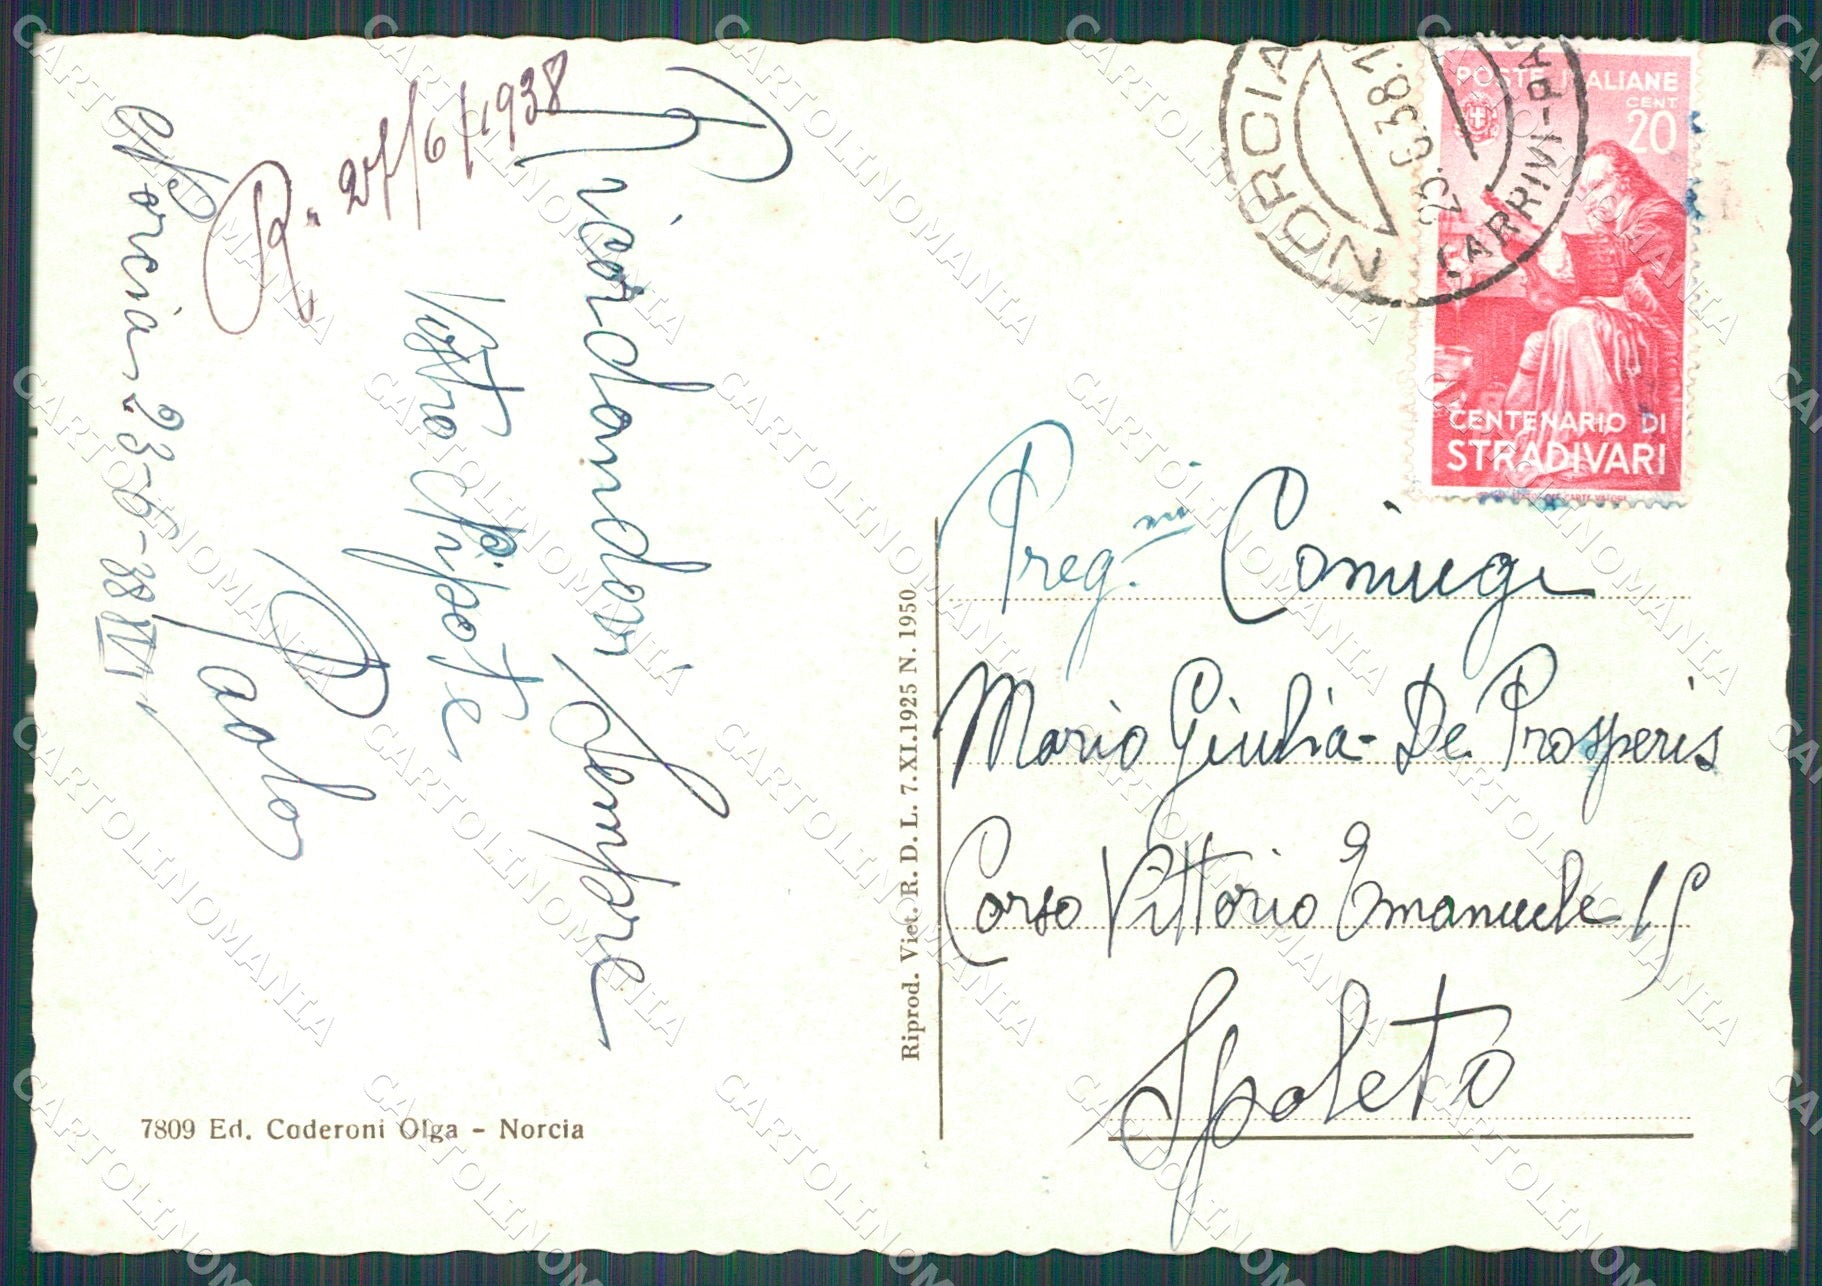 Norcia 23-6-38 XVI
R. 27/6/1938
Ricordandovi Sempre
Vostro Nipote
Paolo
7809 Ed. Caderoni Olga - Norcia
Riprod. Viet. R. D. L. 7. XI. 1925 N. 1950
NORCIA
23. 6 38. 1
(ARRIVI-PA
POSTE ITALIANE
CENT
20
CENTENARIO DI
STRADIVARI
Preg.mi Coniugi
Mario Giulia - De Prosperis
Corso Vittorio Emanuele 15
Spoleto
CARTOLINOMANIA